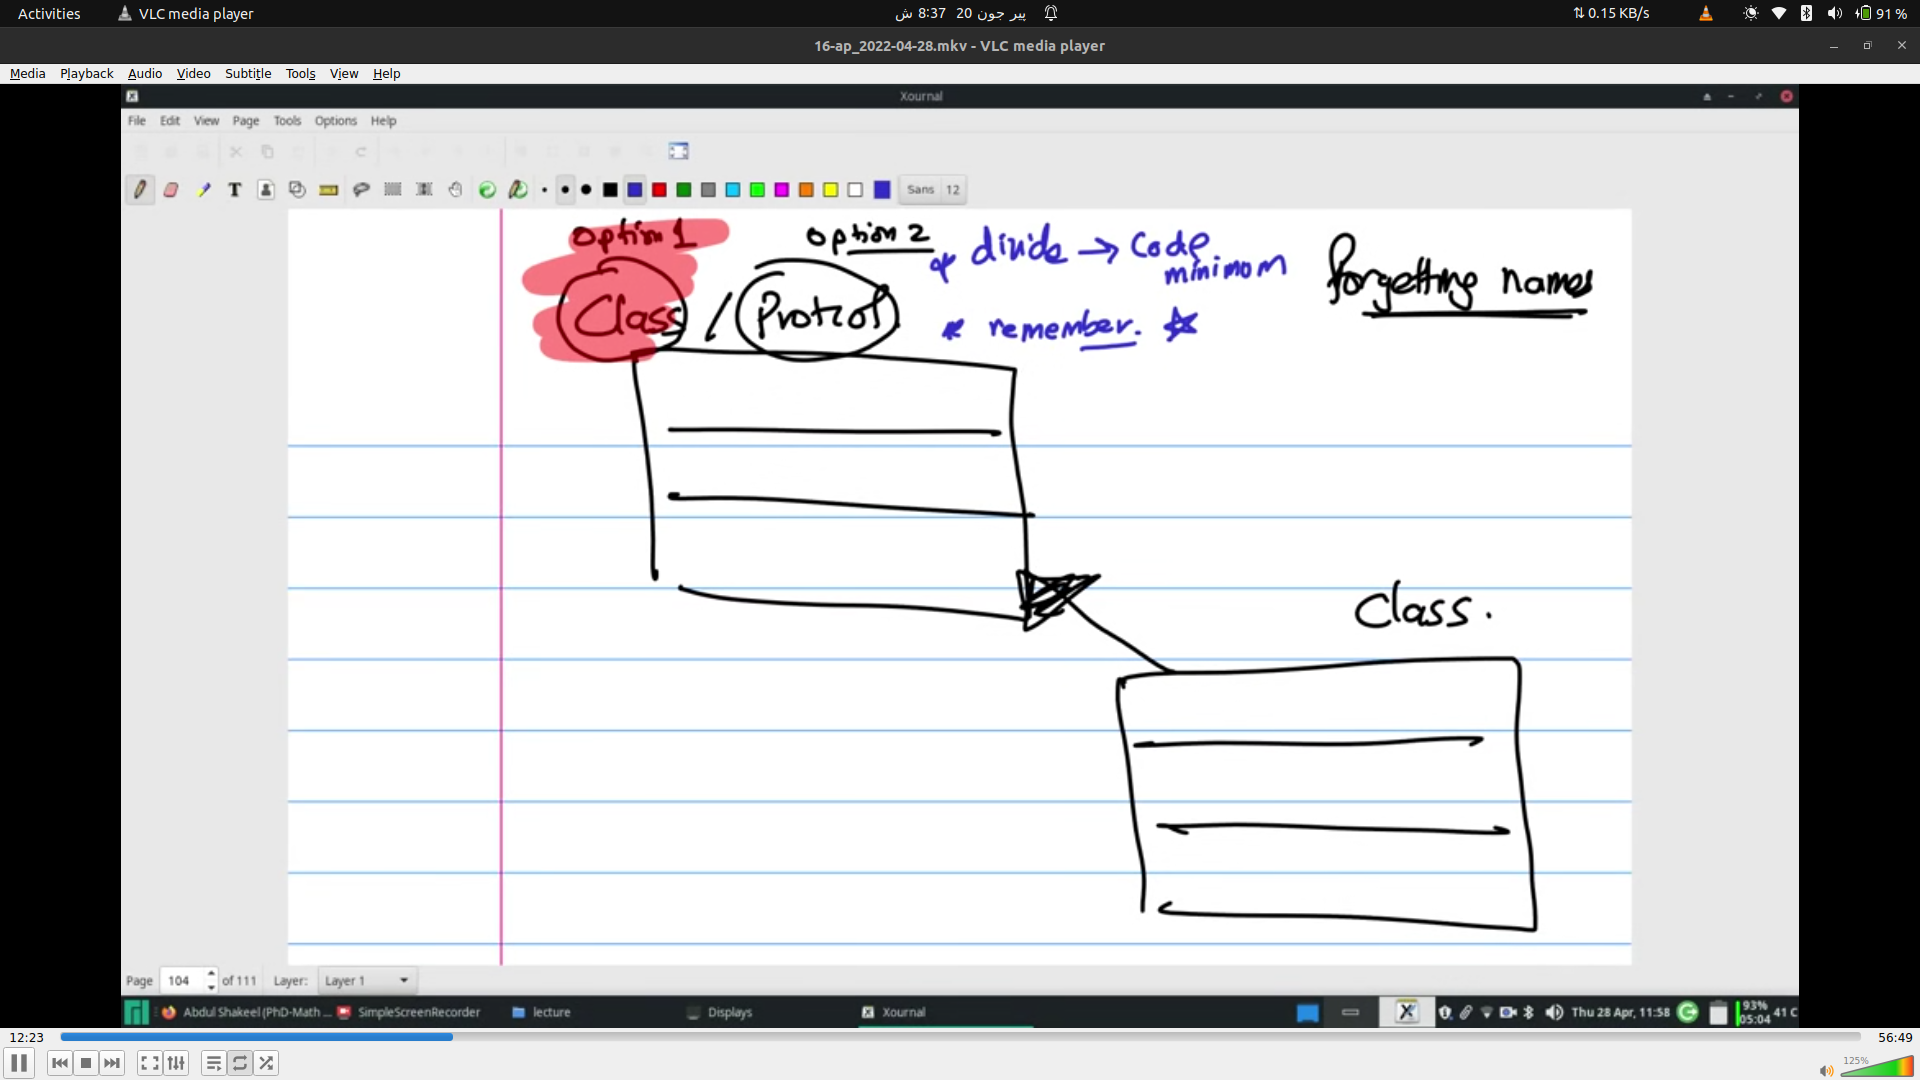 Activities VLC media player پیر جون 20 8:37 ش 0.15 KB/s 91 %
16-ap_2022-04-28.mkv - VLC media player
Media Playback Audio Video Subtitle Tools View Help
Xournal
File Edit View Page Tools Options Help
T Sans 12
Option 1 Option 2 divide → Code
minimom
forgetting names
Class / Protcol
remember.
Class.
Page 104 of 111 Layer: Layer 1
Abdul Shakeel (PhD-Math ... SimpleScreenRecorder lecture Displays Xournal Thu 28 Apr, 11:58 93% 05:04 41 C
12:23 56:49
125%